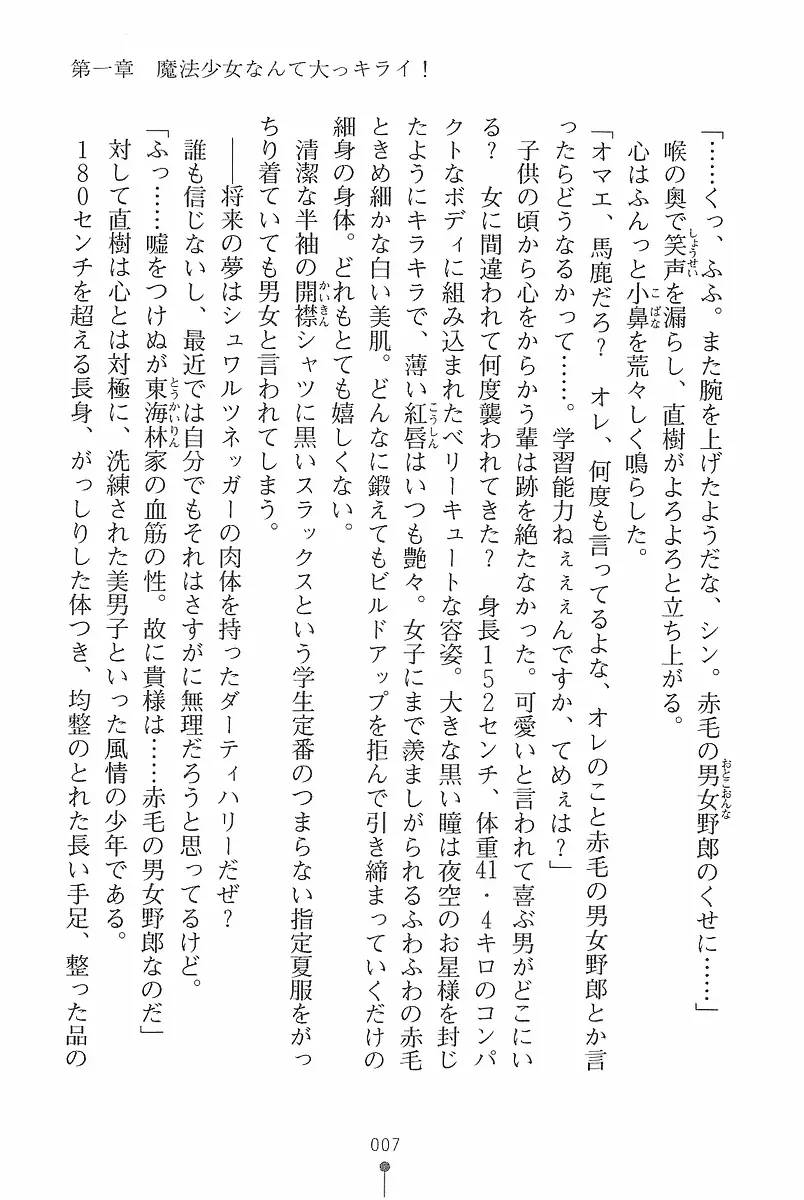 第一章　魔法少女なんて大っキライ！
「……くっ、ふふ。また腕を上げたようだな、シン。赤毛の男女野郎のくせに……」
喉の奥で笑声を漏らし、直樹がよろよろと立ち上がる。
心はふんっと小鼻を荒々しく鳴らした。
「オマエ、馬鹿だろ？　オレ、何度も言ってるよな、オレのこと赤毛の男女野郎とか言
ったらどうなるかって……。学習能力ねぇぇぇんですか、てめぇは？」
子供の頃から心をからかう輩は跡を絶たなかった。可愛いと言われて喜ぶ男がどこにい
る？　女に間違われて何度襲われてきた？　身長152センチ、体重41・4キロのコンパ
クトなボディに組み込まれたベリーキュートな容姿。大きな黒い瞳は夜空のお星様を封じ
たようにキラキラで、薄い紅唇はいつも艶々。女子にまで羨ましがられるふわふわの赤毛
ときめ細かな白い美肌。どんなに鍛えてもビルドアップを拒んで引き締まっていくだけの
細身の身体。どれもとても嬉しくない。
清潔な半袖の開襟シャツに黒いスラックスという学生定番のつまらない指定夏服をがっ
ちり着ていても男女と言われてしまう。
――将来の夢はシュワルツネッガーの肉体を持ったダーティハリーだぜ？
誰も信じないし、最近では自分でもそれはさすがに無理だろうと思ってるけど。
「ふっ……嘘をつけぬが東海林家の血筋の性。故に貴様は……赤毛の男女野郎なのだ」
対して直樹は心とは対極に、洗練された美男子といった風情の少年である。
180センチを超える長身、がっしりした体つき、均整のとれた長い手足、整った品の
007